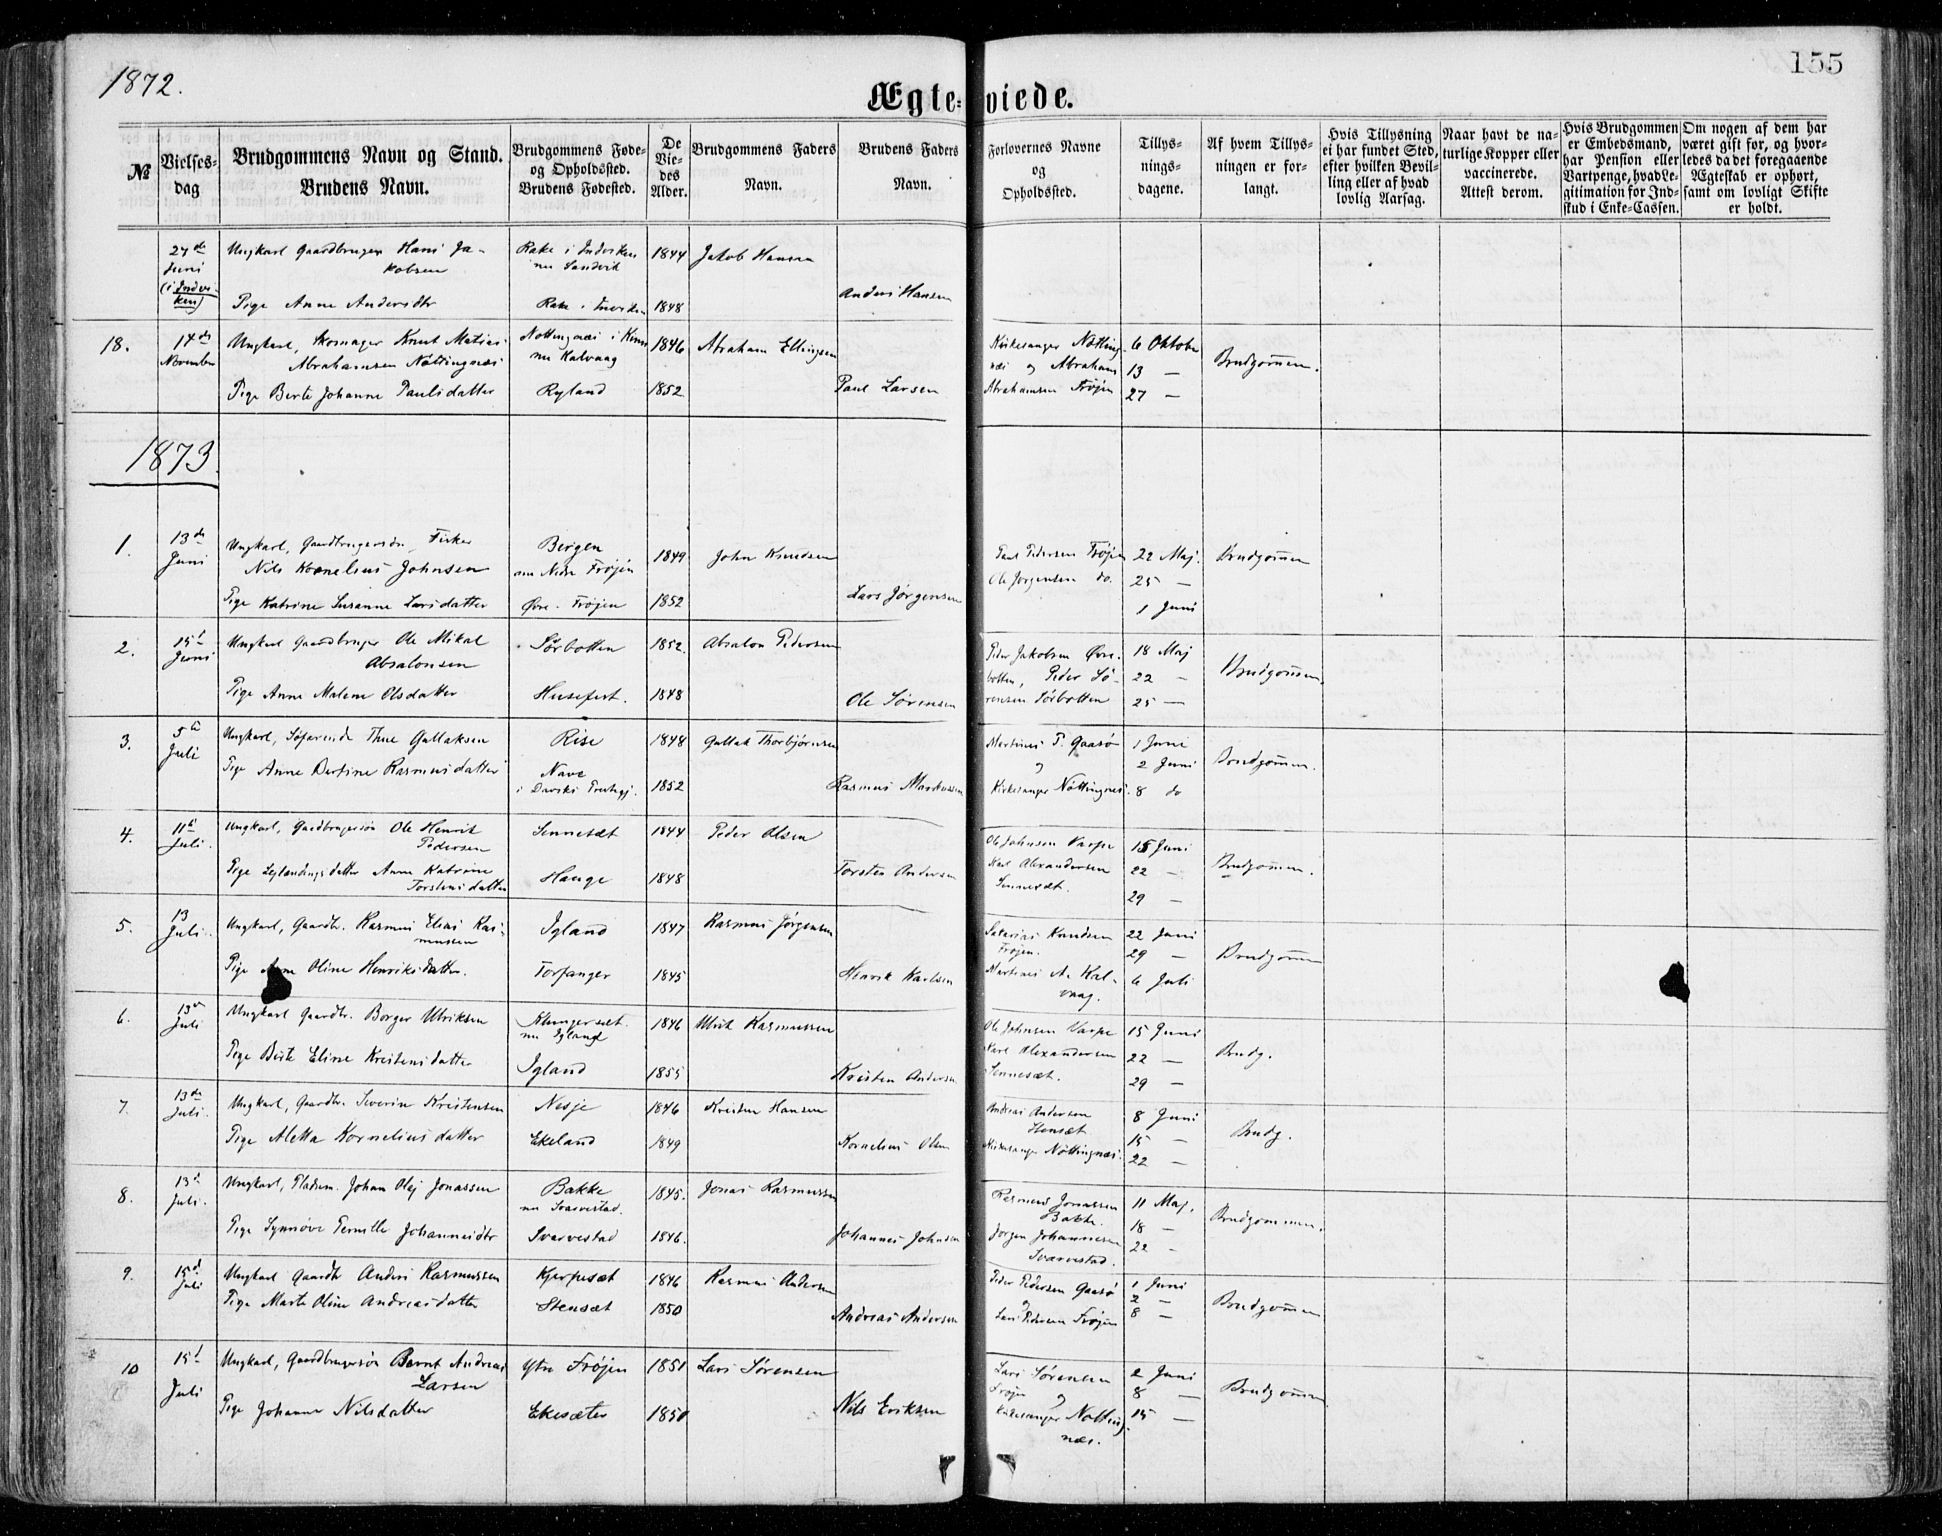 1872.
155
Ægteviede.
№
Vielses-
dag
Brudgommens Navn og Stand.
Brudens Navn.
Brudgommens Føde-
og Opholdssted.
Brudens Fødested.
De
Vie-
des
Alder.
Brudgommens Faders
Navn.
Brudens Faders
Navn.
Forlovernes Navne
og
Opholdssted.
Tillys-
nings-
dagene.
Af hvem Tillys-
ningen er for-
langt.
Hvis Tillysning
ei har fundet Sted,
efter hvilken Bevil-
ling eller af hvad
lovlig Aarsag.
Naar havt de na-
turlige Kopper eller
vaccinerede.
Attest derom.
Hvis Brudgommen
er Embedsmand,
har Pension eller
Vartpenge, hvad Le-
gitimation for Ind-
skud i Enke-Cassen.
Om nogen af dem har
været gift før, og hvor-
ledes da det foregaaende
Ægteskab er ophørt,
samt om lovligt Skifte
er holdt.
Juni
Ungkarl Gaardbruger Hans Ja-
kobsen
1844 Jakob Hansen
Pige Anne Andersdtr 1848 Anders Hansen
18. 14de November
Ungkarl, Skomager Knut Matias
Abrahamsen Nøttingnæs
Nøttingnæs i Kinn
nu Kalvaag
1846 Abraham Ellingsen
Pige Berte Johanne Paulsdatter Ryland 1852 Paul Larsen
Kirkesanger Nøtting-
næs og Abraham
Abrahamsen Frøjen
6 Oktober
13 —
27 —
Brudgommen.
1873.
1. 13de Juni
Ungkarl, Gaardbrugersøn, Fisker
Nils Kornelius Johnsen
Bergen
nu Nedre Frøjen
1849 John Knudsen
Pige Katrine Susanne Larsdatter Øvre Frøjen 1852 Lars Jørgensen
Paul Pedersen Frøjen
Ole Jørgensen do.
22 Maj.
25 —
1 Juni
Brudgommen
2. 15de Juni
Ungkarl Gaardbruger Ole Mikal
Absalonsen
Sørbotten 1852. Absalon Pedersen
Pige Anne Malene Olsdatter Husefest. 1848 Ole Sørensen
Peder Jakobsen Øvre-
botten, Peder Sø-
rensen Sørbotten
18 Maj
22 —
25 —
Brudgommen
3. 5te Juli
Ungkarl, Søfarende Thue Gullaksen Rise 1848 Gullak Thorbjørnsen
Pige Anne Bertine Rasmusdatter Nave
1852 Rasmus Markussen
Martinus P. Gaasø
og
Kirkesanger Nøttingnæs.
1 Juni
2 Juni
8 do
Brudgommen.
4. 11te Juli.
Ungkarl, Gaardbrugersøn Ole Henrik
Pedersen
Sennesæt 1844 Peder Olsen
Anne Katrine
Torstensdatter
Hauge 1848 Torsten Andersen
Ole Johnsen Varpe
Karl Alexandersen
Sennesæt.
15 Juni
22 —
29 —
Brudgommen.
5. 13 Juli.
Ungkarl, Gaardbr. Rasmus Elias Ras-
mussen
Igland 1847 Rasmus Jørgensen
Pige Anne Oline Henriksdatter. Torfanger 1845 Henrik Karlsen
Knudsen
Frøjen.
Martinus A. Kal-
vaag.
22 Juni
29 —
6 Juli
Brudgommen
6. 13de Juli
Ungkarl Gaardbr. Borger Ulriksen Klungersæt.
nu Igland
1846 Ulrik Rasmussen
Pige Berte Elisse Kristensdatter Igland 1855 Kristen Andersen
Ole Johnsen Varpe
Karl Alexandersen
Sennesæt.
15 Juni
22 —
29 —
Brudg.
7. 13de Juli.
Ungkarl, Gaardbr. Severin Kristensen Nesje 1846 Kristen Hansen
Pige Aletta Korneliusdatter Ekeland 1849 Kornelius Olsen
Andreas Andersen
Stensæt
Kirkesanger Nøttingnæs.
8 Juni
15 —
22 —
Brudg.
8. 13de Juli.
Ungkarl, Pladsm. Johan Olaj Jonassen Bakke
nu Svarvestad.
1845. Jonas Rasmussen
Pige Synnøve Pernille Johannesdtr Svarvestad 1846. Johannes Johnsen
Rasmus Jonassen
Bakke.
Jørgen Johannesen
Svarvestad.
11 Maj.
18 —
22 —
Brudgommen.
9. 15de Juli
Ungkarl Gaardbr Anders Rasmussen Kjerpesæt 1846 Rasmus Andersen
Pige Marte Oline Andreasdatter Stensæt 1850 Andreas Andersen
Peder Pedersen Gaasø
og
Lars Pedersen Frøjen
1 Juni
2 —
8 —
Brudgommen
10 15de Juli
Ungkarl, Gaardbrugersøn Bernt Andreas
Larsen
Ytre Frøjen 1851 Lars Sørensen
Pige Johanne Nilsdatter Ekesæter 1850 Nils Eriksen
Lars Sørensen
Frøjen og
Kirkesanger Nøtting-
næs.
2 Juni
8 —
15 —
Brudgommen